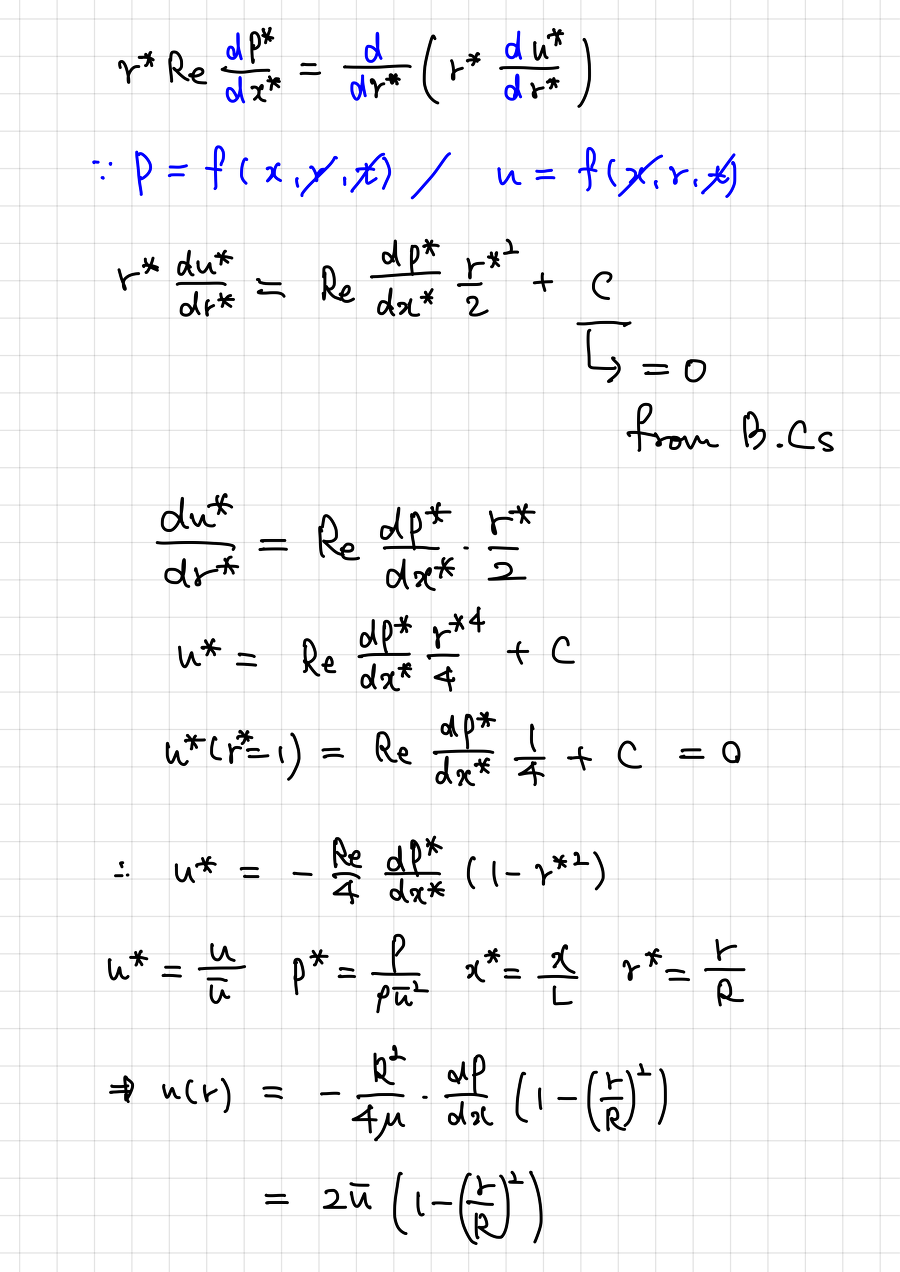 r* Re dP*/dx* = d/dr* (r* du*/dr*)
∵ P = f(x, r, t) / u = f(x, r, t)
r* du*/dr* = Re dP*/dx* r*²/2 + C
↳ = 0
from B.Cs
du*/dr* = Re dP*/dx* · r*/2
u* = Re dP*/dx* r*⁴/4 + C
u*(r*=1) = Re dP*/dx* 1/4 + C = 0
∴ u* = - Re/4 dP*/dx* (1 - r*²)
u* = u/ū P* = P/ρū² x* = x/L r* = r/R
⇒ u(r) = - R²/4μ · dP/dx (1 - (r/R)²)
= 2ū (1 - (r/R)²)